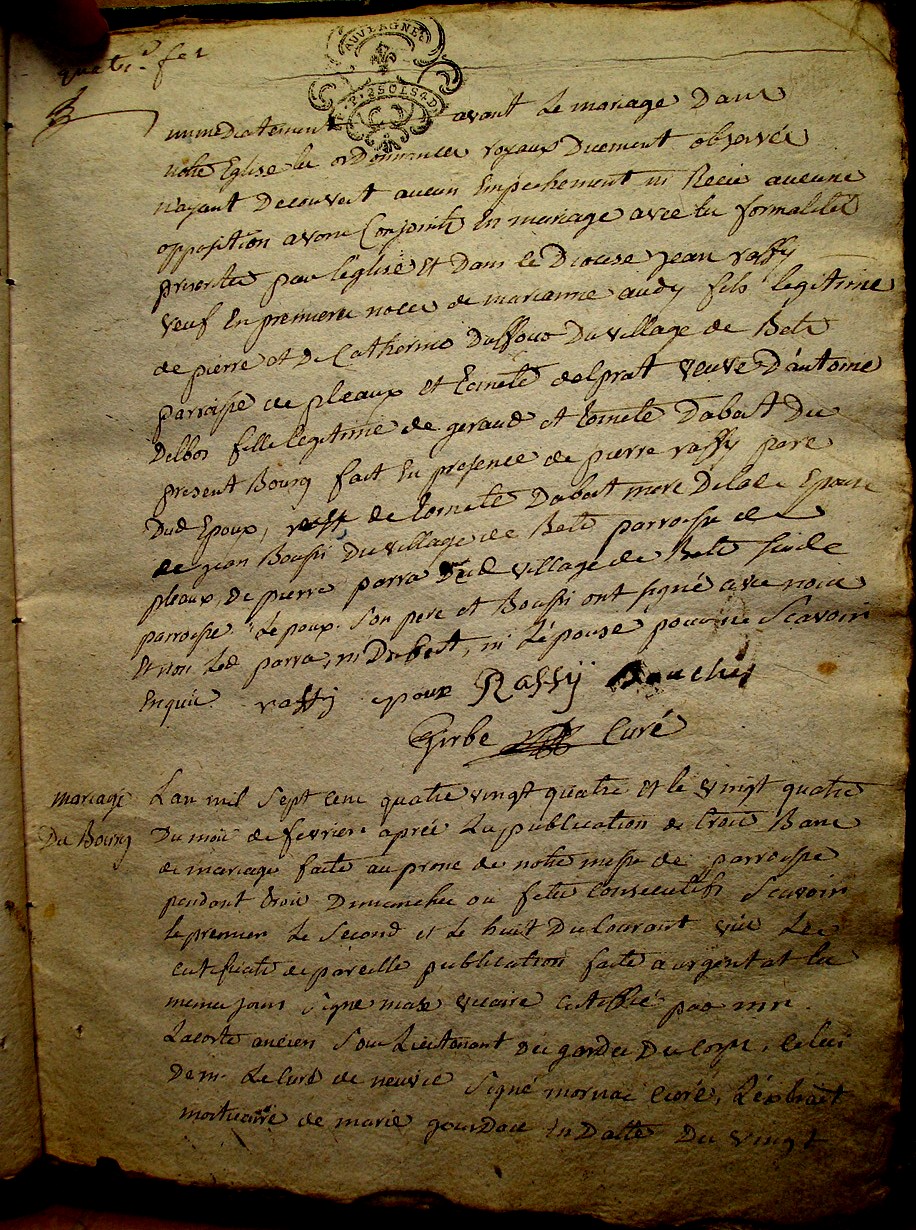 AUVERGNE
P. 2 SOLS 4 D.
immediatement avant le mariage Dans
notre Eglise les ordonnances royaux Duement observée
n'ayant Decouvert aucun Empechement ni Recu aucune
opposition avons Conjoints En mariage avec les formalités
prescrites par l'eglise et Dans le Diocese jean raffy
veuf En premieres noces de marianne audy fils legitime
de pierre et de Catherine Duffour Du village de Bets
parroisse de pleaux et toinete delprat veuve D'antoine
Delbos fille legitime de geraud et toinete Dabert Du
present Bourg fait En presence de pierre raffy pere
Dud Epoux, de toinete Dabert mere De lad Epouse
de jean Bouffi Du village de Bets parroisse de
pleaux, De pierre parra Dud village de Bets susde
parroisse. L'epoux Son pere et Bouffi ont signé avec nous
Et non Led parra, ni Dabert, ni L'epouse pour ne Scavoir
Enquis raffy epoux Raffÿ
Girbe Curé
mariage
Du Bourg
L'an mil Sept cent quatre vingt quatre Et le vingt quatre
Du mois de fevrier après La publication de trois Bans
de mariage faite au prone de notre messe de parroisse
pendant trois Dimanches ou fetes Consecutifs Scavoir
le premier Le Second et Le huit Du Courant vûs Les
certificats de pareille publication faite a argentat les
memes jours Signé mase vicaire certiffié par mr.
Lacoste ancien Sous Lieutenant des gardes Du Corps, celui
De mr Le Curé de neuvic Signé mornac Curé, L'extrait
mortuaire de marie gourdon En Datte Du vingt